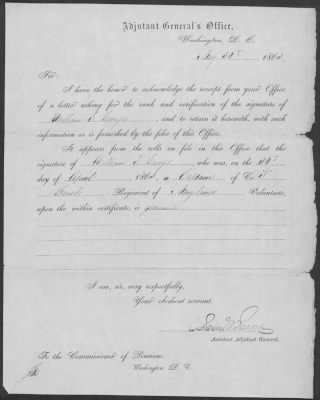 Adjutant General's Office,
Washington, D. C.,
186
Sir:
I have the honor to acknowledge the receipt from your Office
of a letter asking for the rank and verification of the signature of
William, and to return it herewith, with such
information as is furnished by the files of this Office.
It appears from the rolls on file in this Office that the
signature of William, who was, on the
day of April 186, a of Co.
Regiment of Maryland Volunteers,
upon the within certificate, is genuine
I am, sir, very respectfully,
Your obedient servant,
Assistant Adjutant General.
To the Commissioner of Pensions,
Washington, D. C.